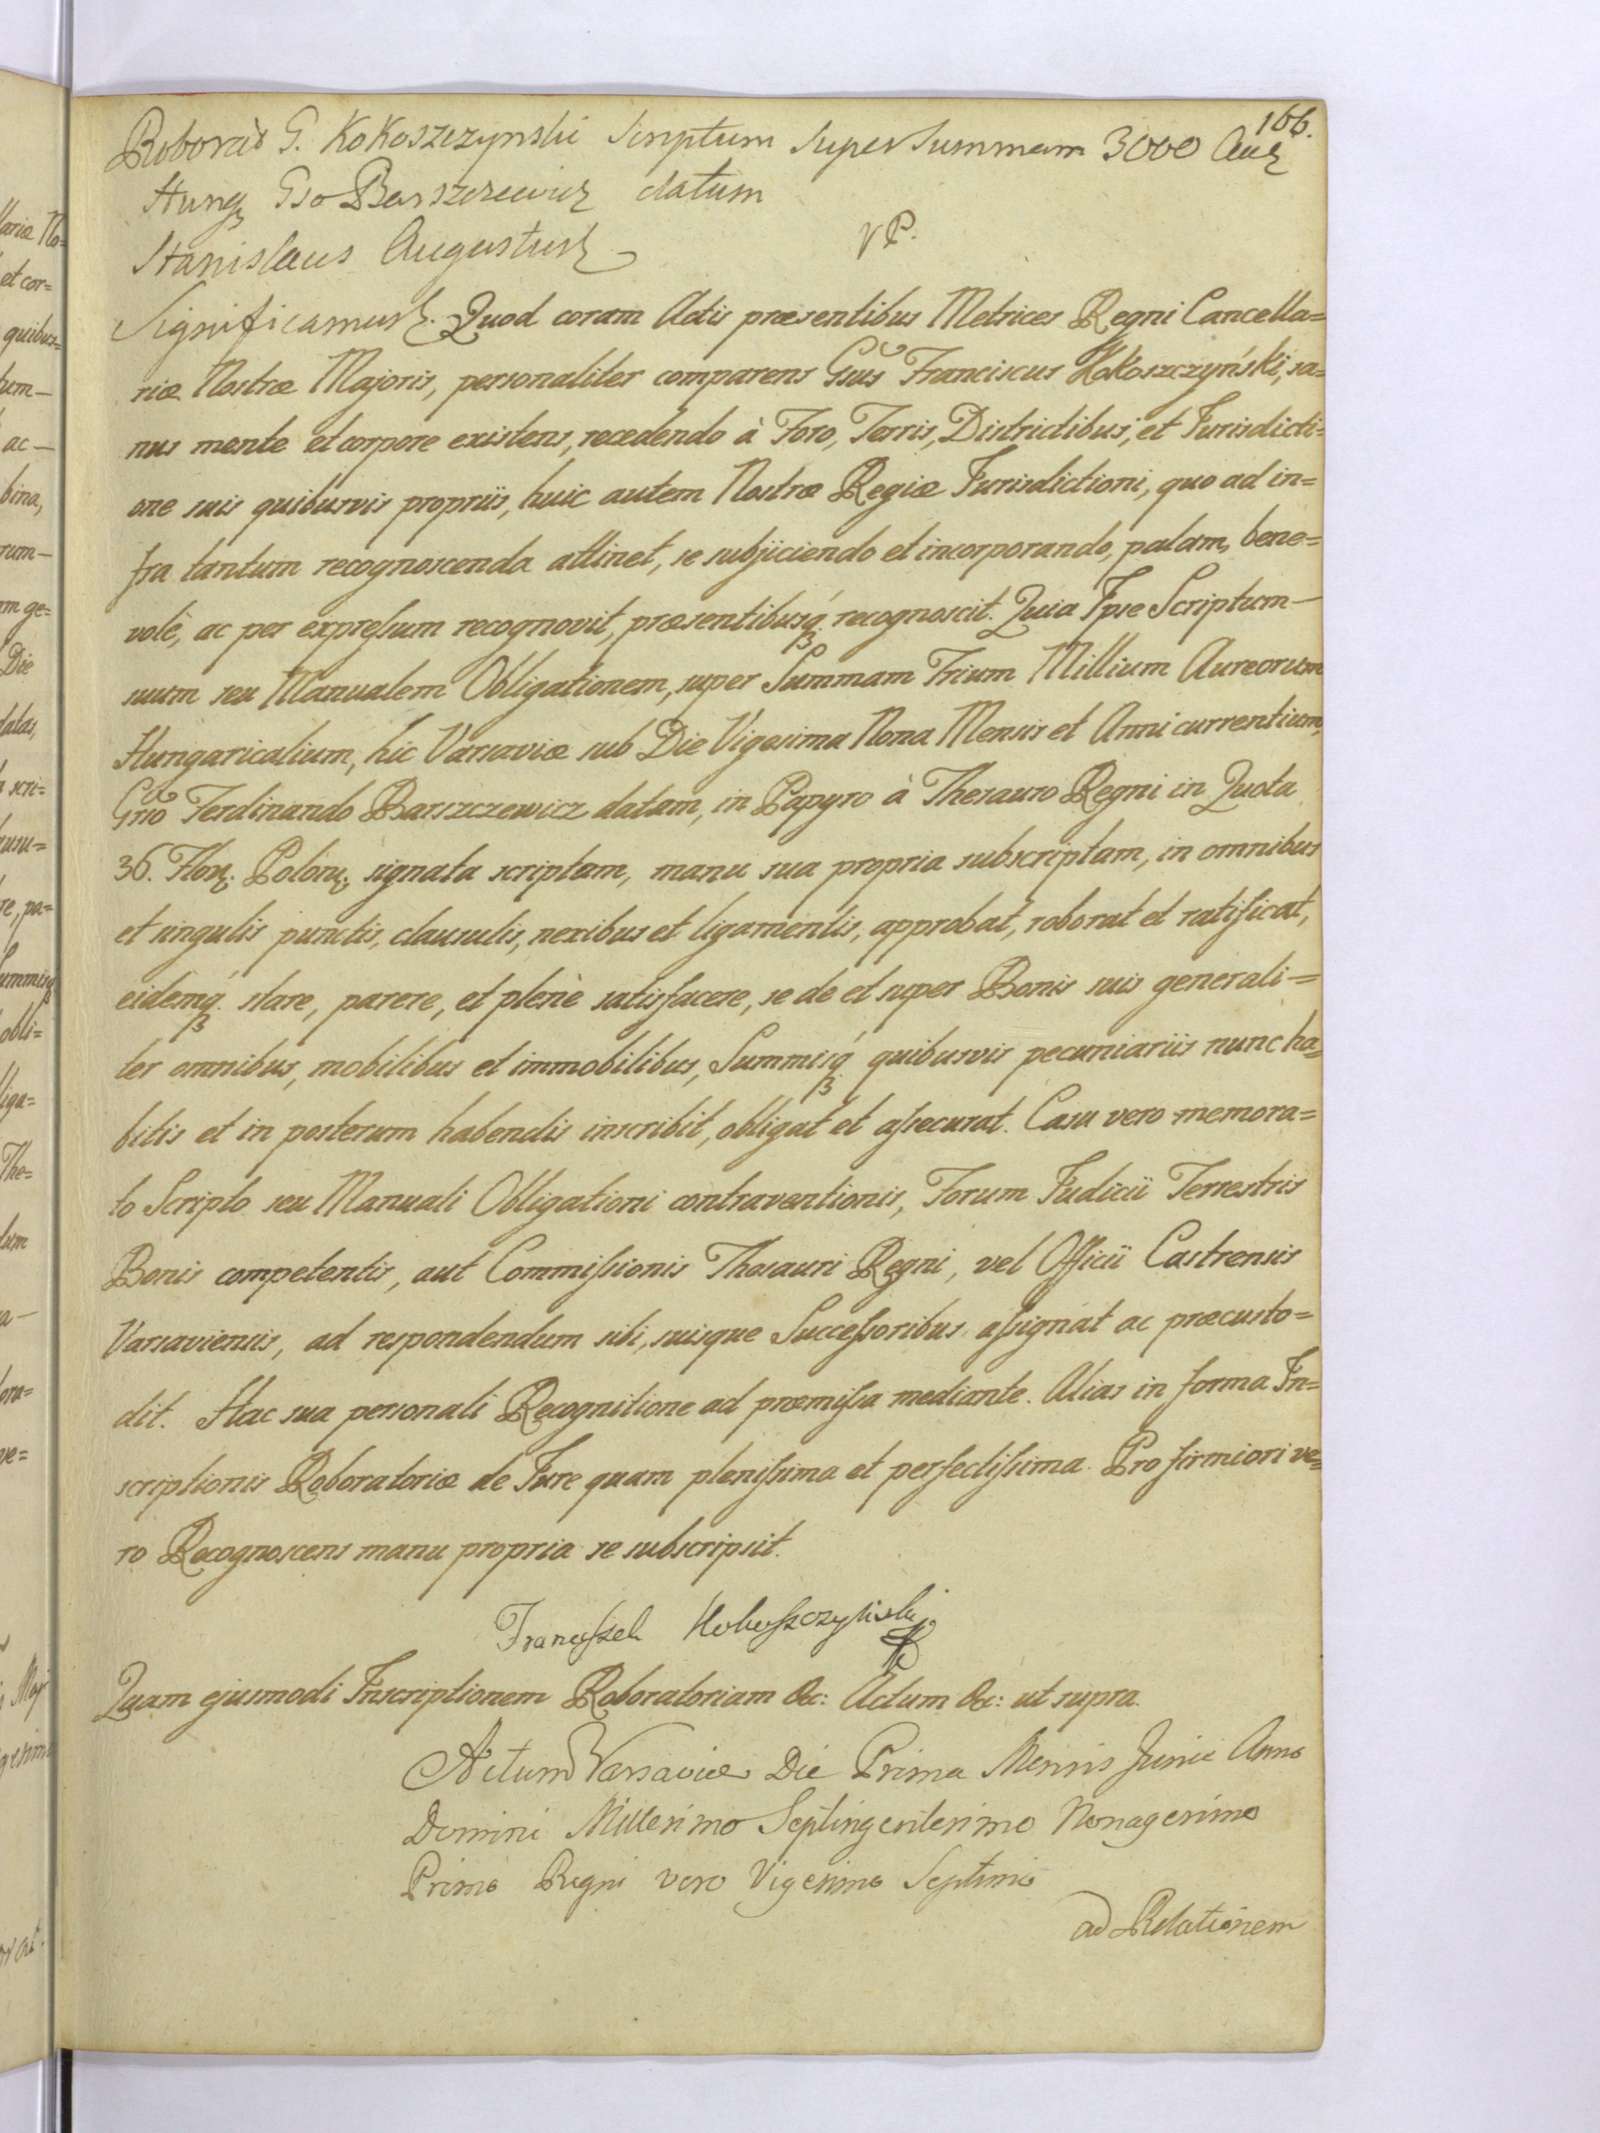 166.
Roborat G. Kokoszczynski Scriptum super Summam 3000 Aur
Hung Gso Barszczewicz datum
Stanislaus Augustus VP.
Significamus. Quod coram Actis præsentibus Metrices Regni Cancella=
riæ Nostræ Majoris, personaliter comparens Gsus Franciscus Kokoszczyński, sa=
nus mente et corpore existens, recedendo à Foro, Terris, Districtibus, et Jurisdicti=
one suis quibusvis propriis, huic autem Nostræ Regiæ Jurisdictioni, quo ad in=
fra tantum recognoscenda attinet, se subjiciendo et incorporando, palam, bene=
volè, ac per expreſsum recognovit, præsentibusq́ recognoscit. Quia Ipse Scriptum
suum seu Manualem Obligationem, super Summam Trium Millium Aureorum
Hungaricalium, hic Varsaviæ sub Die Vigesima Nona Mensis et Anni currentium,
Gso Ferdinando Barszczewicz datam, in Papyro à Thesauro Regni in Quota
36. Flor. Polon. signata scriptam, manu sua propria subscriptam, in omnibus
et singulis punctis, clausulis, nexibus et ligamentis, approbat, roborat et ratificat,
eidemq́ stare, parere, et plenè satisfacere, se de et super Bonis suis generali=
ter omnibus, mobilibus et immobilibus, Summisq́ quibusvis pecuniariis nunc ha=
bitis et in posterum habendis inscribit, obligat et aſsecurat. Casu vero memora=
to Scripto seu Manuali Obligationi contraventionis, Forum Judicii Terrestris
Bonis competentis, aut Commiſsionis Thesauri Regni, vel Officii Castrensis
Varsaviensis, ad respondendum sibi, suisque Succeſsoribus aſsignat ac præcusto=
dit. Hac sua personali Recognitione ad præmiſsa mediante. Alias in forma In=
scriptionis Roboratoriæ de Jure quam pleniſsima et perfectiſsima. Pro firmiori ve=
ro Recognoscens manu propria se subscripsit.
Franciſzek Kokoſzczyński
Quam ejusmodi Inscriptionem Roboratoriam &c: Actum &c: ut supra.
Actum Varsaviæ Die Prima Mensis Junii Anno
Domini Millesimo Septingentesimo Nonagesimo
Primo Regni vero Vigesimo Septimo
ad Relationem